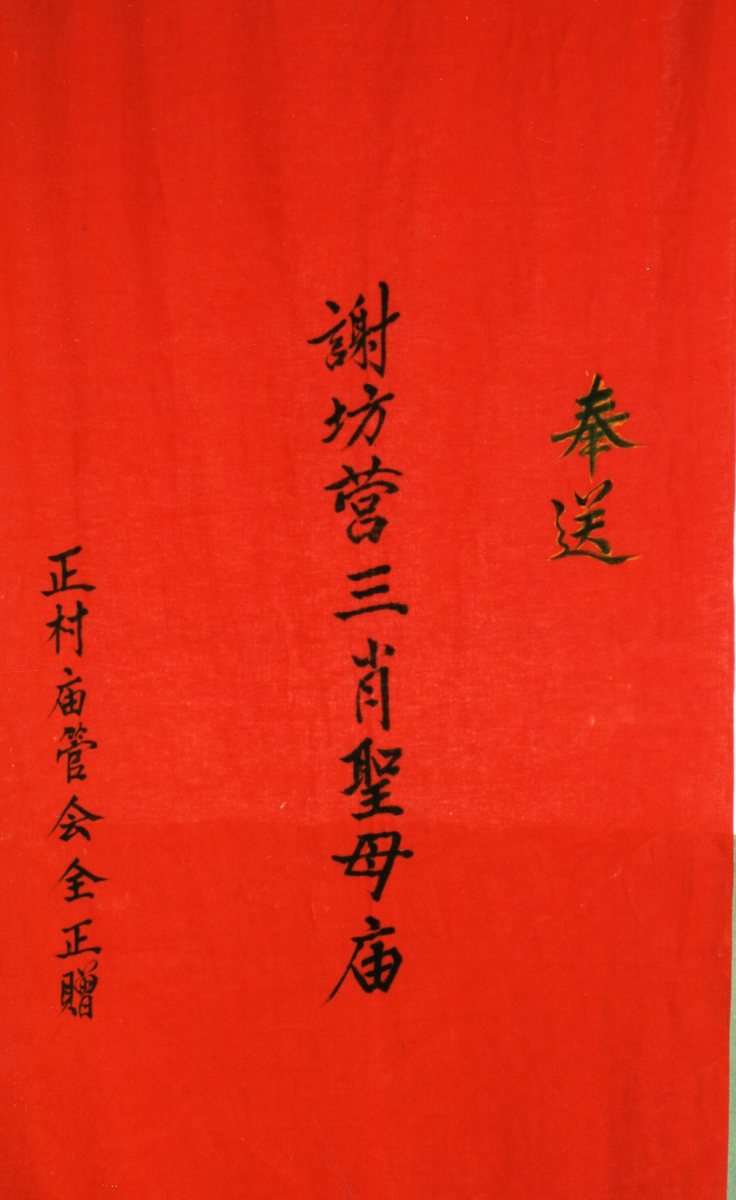 奉送
謝坊营三肖聖母庙
正村庙管会全正贈